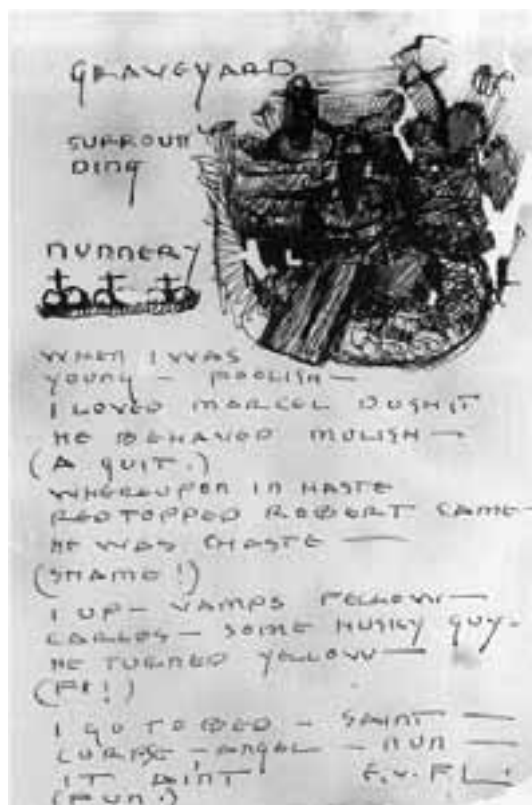 GRAVEYARD
SURROUN
DING
NUNNERY
WHEN I WAS
YOUNG — FOOLISH —
I LOVED MARCEL DUSHIT
HE BEHAVED MULISH —
(A QUIT.)
WHEREUPON IN HASTE
REDTOPPED ROBERT CAME —
HE WAS CHASTE —
(SHAME!)
I UP — VAMPS FELLOW —
CARLOS — SOME HUSKY GUY —
HE TURNED YELLOW —
(FI!)
I GO TO BED — SAINT —
CORPSE — ANGEL — NUN —
IT AINT E.V.F.L.
(FUN.)